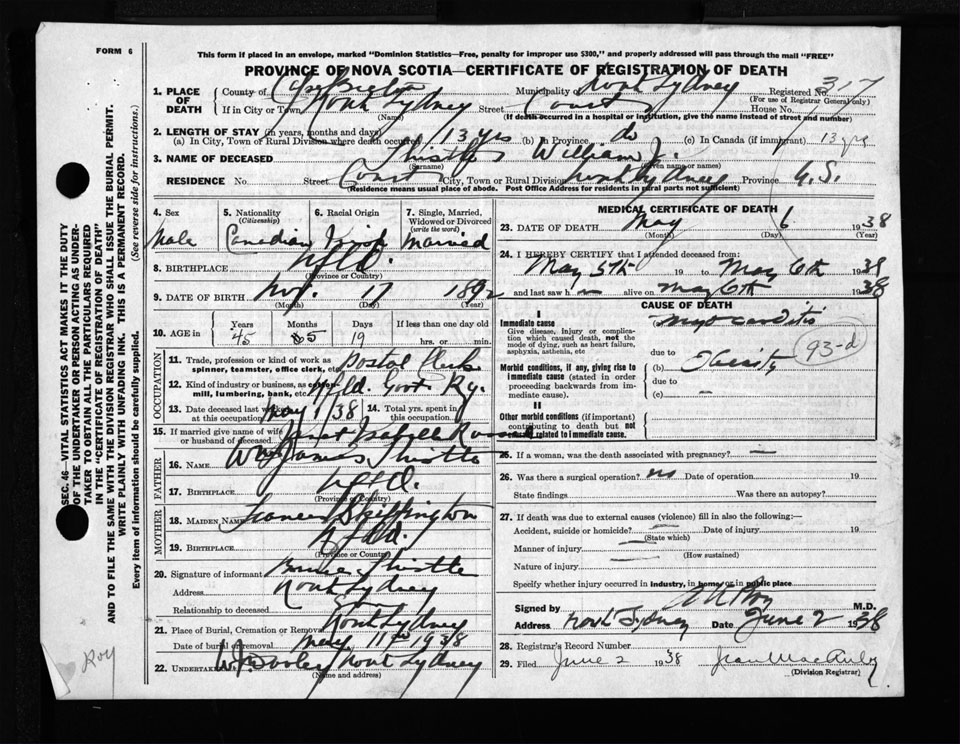 FORM 6
This form if placed in an envelope, marked "Dominion Statistics—Free, penalty for improper use $300," and properly addressed will pass through the mail "FREE"
PROVINCE OF NOVA SCOTIA—CERTIFICATE OF REGISTRATION OF DEATH
1. PLACE OF DEATH
County of Cape Breton Municipality of North Sydney Registered No. 317
(For use of Registrar General only)
If in City or Town North Sydney Street Court House No.
(Name) (If death occurred in a hospital or institution, give the name instead of street and number)
2. LENGTH OF STAY (in years, months and days)
(a) In City, Town or Rural Division where death occurred 13 yrs (b) In Province do (c) In Canada (if immigrant) 13 yrs
3. NAME OF DECEASED Thistle William J.
(Surname) (Given name or names)
RESIDENCE No. Street Court City, Town or Rural Division North Sydney Province
(Residence means usual place of abode. Post Office Address for residents in rural parts not sufficient)
4. Sex
Male
5. Nationality
(Citizenship)
Canadian
6. Racial Origin
Irish
7. Single, Married, Widowed or Divorced
(write the word)
Married
8. BIRTHPLACE Nfld.
(Province or Country)
9. DATE OF BIRTH Nov. 17 1892
(Month) (Day) (Year)
10. AGE in
Years Months Days If less than one day old
45 5 19 hrs. or min.
OCCUPATION
11. Trade, profession or kind of work as spinner, teamster, office clerk, etc. Postal Clerk
12. Kind of industry or business, as cotton mill, lumbering, bank, etc. Nfld. Govt. Ry.
13. Date deceased last worked at this occupation May 1 38
14. Total yrs. spent in this occupation
15. If married give name of wife or husband of deceased Janet Isabell
FATHER
16. NAME Wm James Thistle
17. BIRTHPLACE Nfld.
(Province or Country)
MOTHER
18. MAIDEN NAME Frances Skiffington
19. BIRTHPLACE Nfld.
(Province or Country)
20. Signature of informant Thistle
Address North Sydney
Relationship to deceased
21. Place of Burial, Cremation or Removal North Sydney
Date of burial or removal May 11th 1938
22. UNDERTAKER W. Dooley North Sydney
(Name and address)
MEDICAL CERTIFICATE OF DEATH
23. DATE OF DEATH May 6 1938
(Month) (Day) (Year)
24. I HEREBY CERTIFY that I attended deceased from:
May 5th 19 to May 6th 1938
and last saw h m alive on May 6th 1938
CAUSE OF DEATH
I
Immediate cause
Give disease, injury or complication which caused death, not the mode of dying, such as heart failure, asphyxia, asthenia, etc
(a) Myocarditis
93-d
due to
Morbid conditions, if any, giving rise to immediate cause (stated in order proceeding backwards from immediate cause).
(b) Obesity
due to
(c) —
II
Other morbid conditions (if important) contributing to death but not causally related to immediate cause.
25. If a woman, was the death associated with pregnancy? —
26. Was there a surgical operation? no Date of operation 19
State findings Was there an autopsy?
27. If death was due to external causes (violence) fill in also the following:—
Accident, suicide or homicide? — Date of injury 19
(State which)
Manner of injury —
(How sustained)
Nature of injury —
Specify whether injury occurred in industry, in home or in public place
Signed by M.D.
Address North Sydney Date June 2 1938
28. Registrar's Record Number
29. Filed June 2 1938 Jean
(Division Registrar)
SEC. 46—VITAL STATISTICS ACT MAKES IT THE DUTY
OF THE UNDERTAKER OR PERSON ACTING AS UNDERTAKER TO OBTAIN ALL THE PARTICULARS REQUIRED
IN THE "CERTIFICATE OF REGISTRATION OF DEATH"
AND TO FILE THE SAME WITH THE DIVISION REGISTRAR WHO SHALL ISSUE THE BURIAL PERMIT.
WRITE PLAINLY WITH UNFADING INK. THIS IS A PERMANENT RECORD.
Every item of information should be carefully supplied. (See reverse side for instructions)
Roy